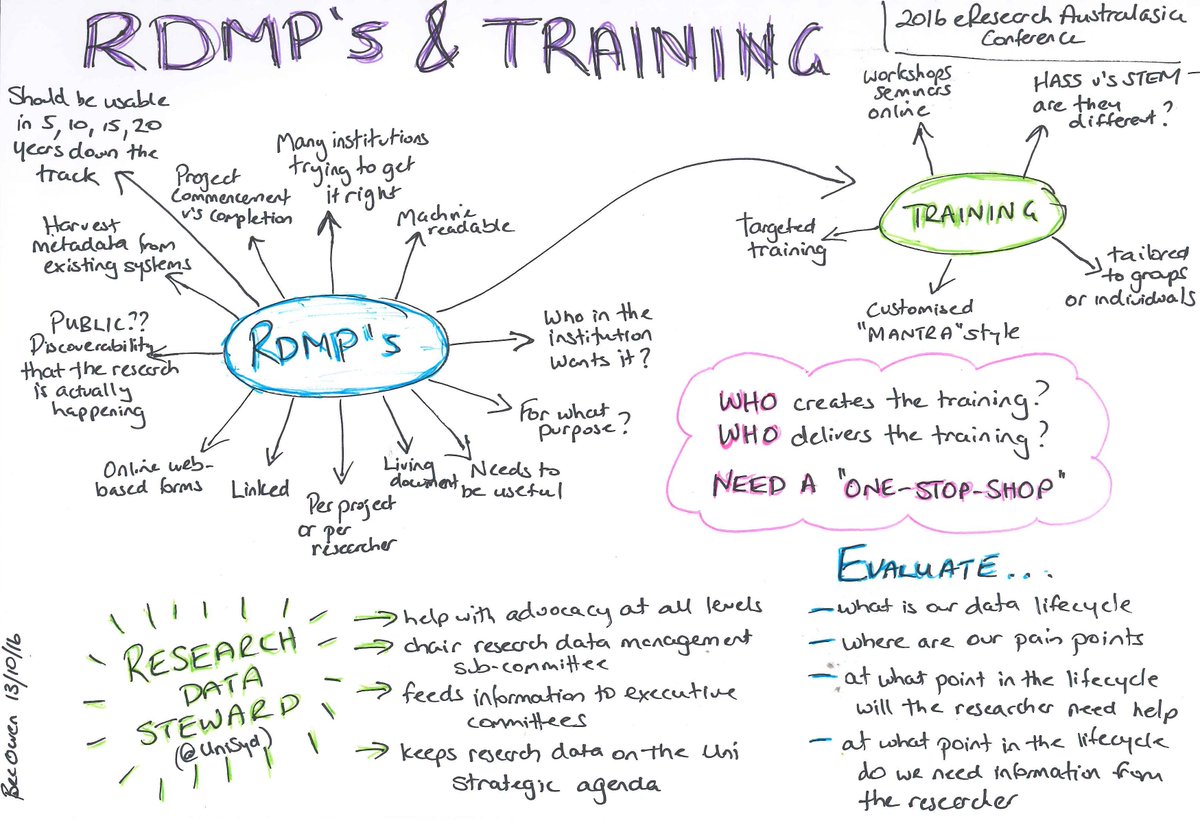 RDMP's & TRAINING
2016 eResearch Australasia
Conference
Should be usable
in 5, 10, 15, 20
years down the
track
Project
commencement
v's completion
Many institutions
trying to get
it right
Machine
readable
Harvest
metadata from
existing systems
PUBLIC??
Discoverability
that the research
is actually
happening
RDMP's
Who in the
institution
wants it?
For what
purpose?
Online web-
based forms
Linked
Per project
or per
researcher
Living
document
Needs to
be useful
workshops
seminars
online
HASS v's STEM -
are they
different?
TRAINING
Targeted
training
Customised
"MANTRA" style
tailored
to groups
or individuals
WHO creates the training?
WHO delivers the training?
NEED A "ONE-STOP-SHOP"
RESEARCH
DATA
STEWARD
(@UniSyd)
help with advocacy at all levels
chair research data management
sub-committee
feeds information to executive
committees
keeps research data on the Uni
strategic agenda
EVALUATE...
- what is our data lifecycle
- where are our pain points
- at what point in the lifecycle
will the researcher need help
- at what point in the lifecycle
do we need information from
the researcher
Bec Owen 13/10/16